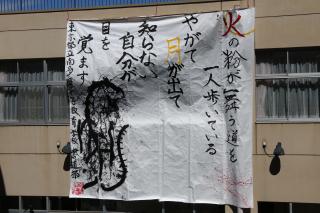 火の粉が舞う道を
一人歩いている
やがて
月が出て
知らない
自分が
目を
覚ます